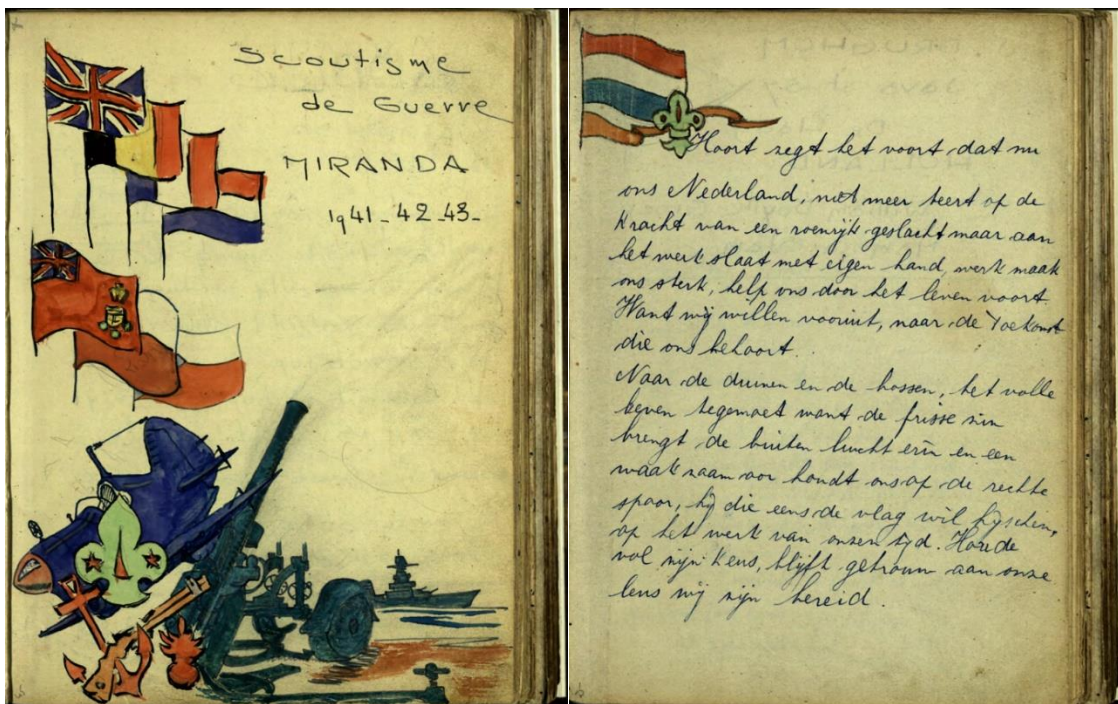 Scoutisme
de Guerre
MIRANDA
1941_42_43_
Hoort zegt het voort, dat nu
ons Nederland, niet meer teert op de
Kracht van een roemrijk geslacht maar aan
het werk slaat met eigen hand, werk maak
ons sterk, help ons door het leven voort.
Want wij willen vooruit, naar de Toekomst
die ons behoort.
Naar de duinen en de bossen, het volle
leven tegemoet want de frisse zin
brengt de buiten lucht erin en een
waakzaam oor houdt ons op de rechte
spoor, hij die eens de vlag wil hijschen,
op het werk van onzen tijd. Houde
vol zijn keus, blijft getrouw aan onze
leus wij zijn bereid.